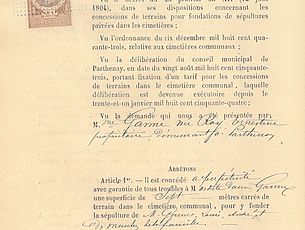 1804), dans ses dispositions concernant les
concessions de terrains pour fondations de sépultures
privées dans les cimetières;
Vu l'ordonnance du six décembre mil huit cent qua-
rante-trois, relative aux cimetières communaux;
Vu la délibération du conseil municipal de
Parthenay, en date du vingt août mil huit cent cinquante-
trois, portant fixation d'un tarif pour les concessions
de terrains dans le cimetière communal, laquelle
délibération est devenue exécutoire depuis le
trente-et-un janvier mil huit cent cinquante-quatre;
Vu la demande qui nous a été présentée par
M. me née
propriétaire, demeurant à Parthenay
ARRÊTONS
Article 1er. — Il est concédé à perpétuité
avec garantie de tous troubles à M
une superficie de Sept mètres carrés de
terrain dans le cimetière communal, pour y fonder
la sépulture de M
famille